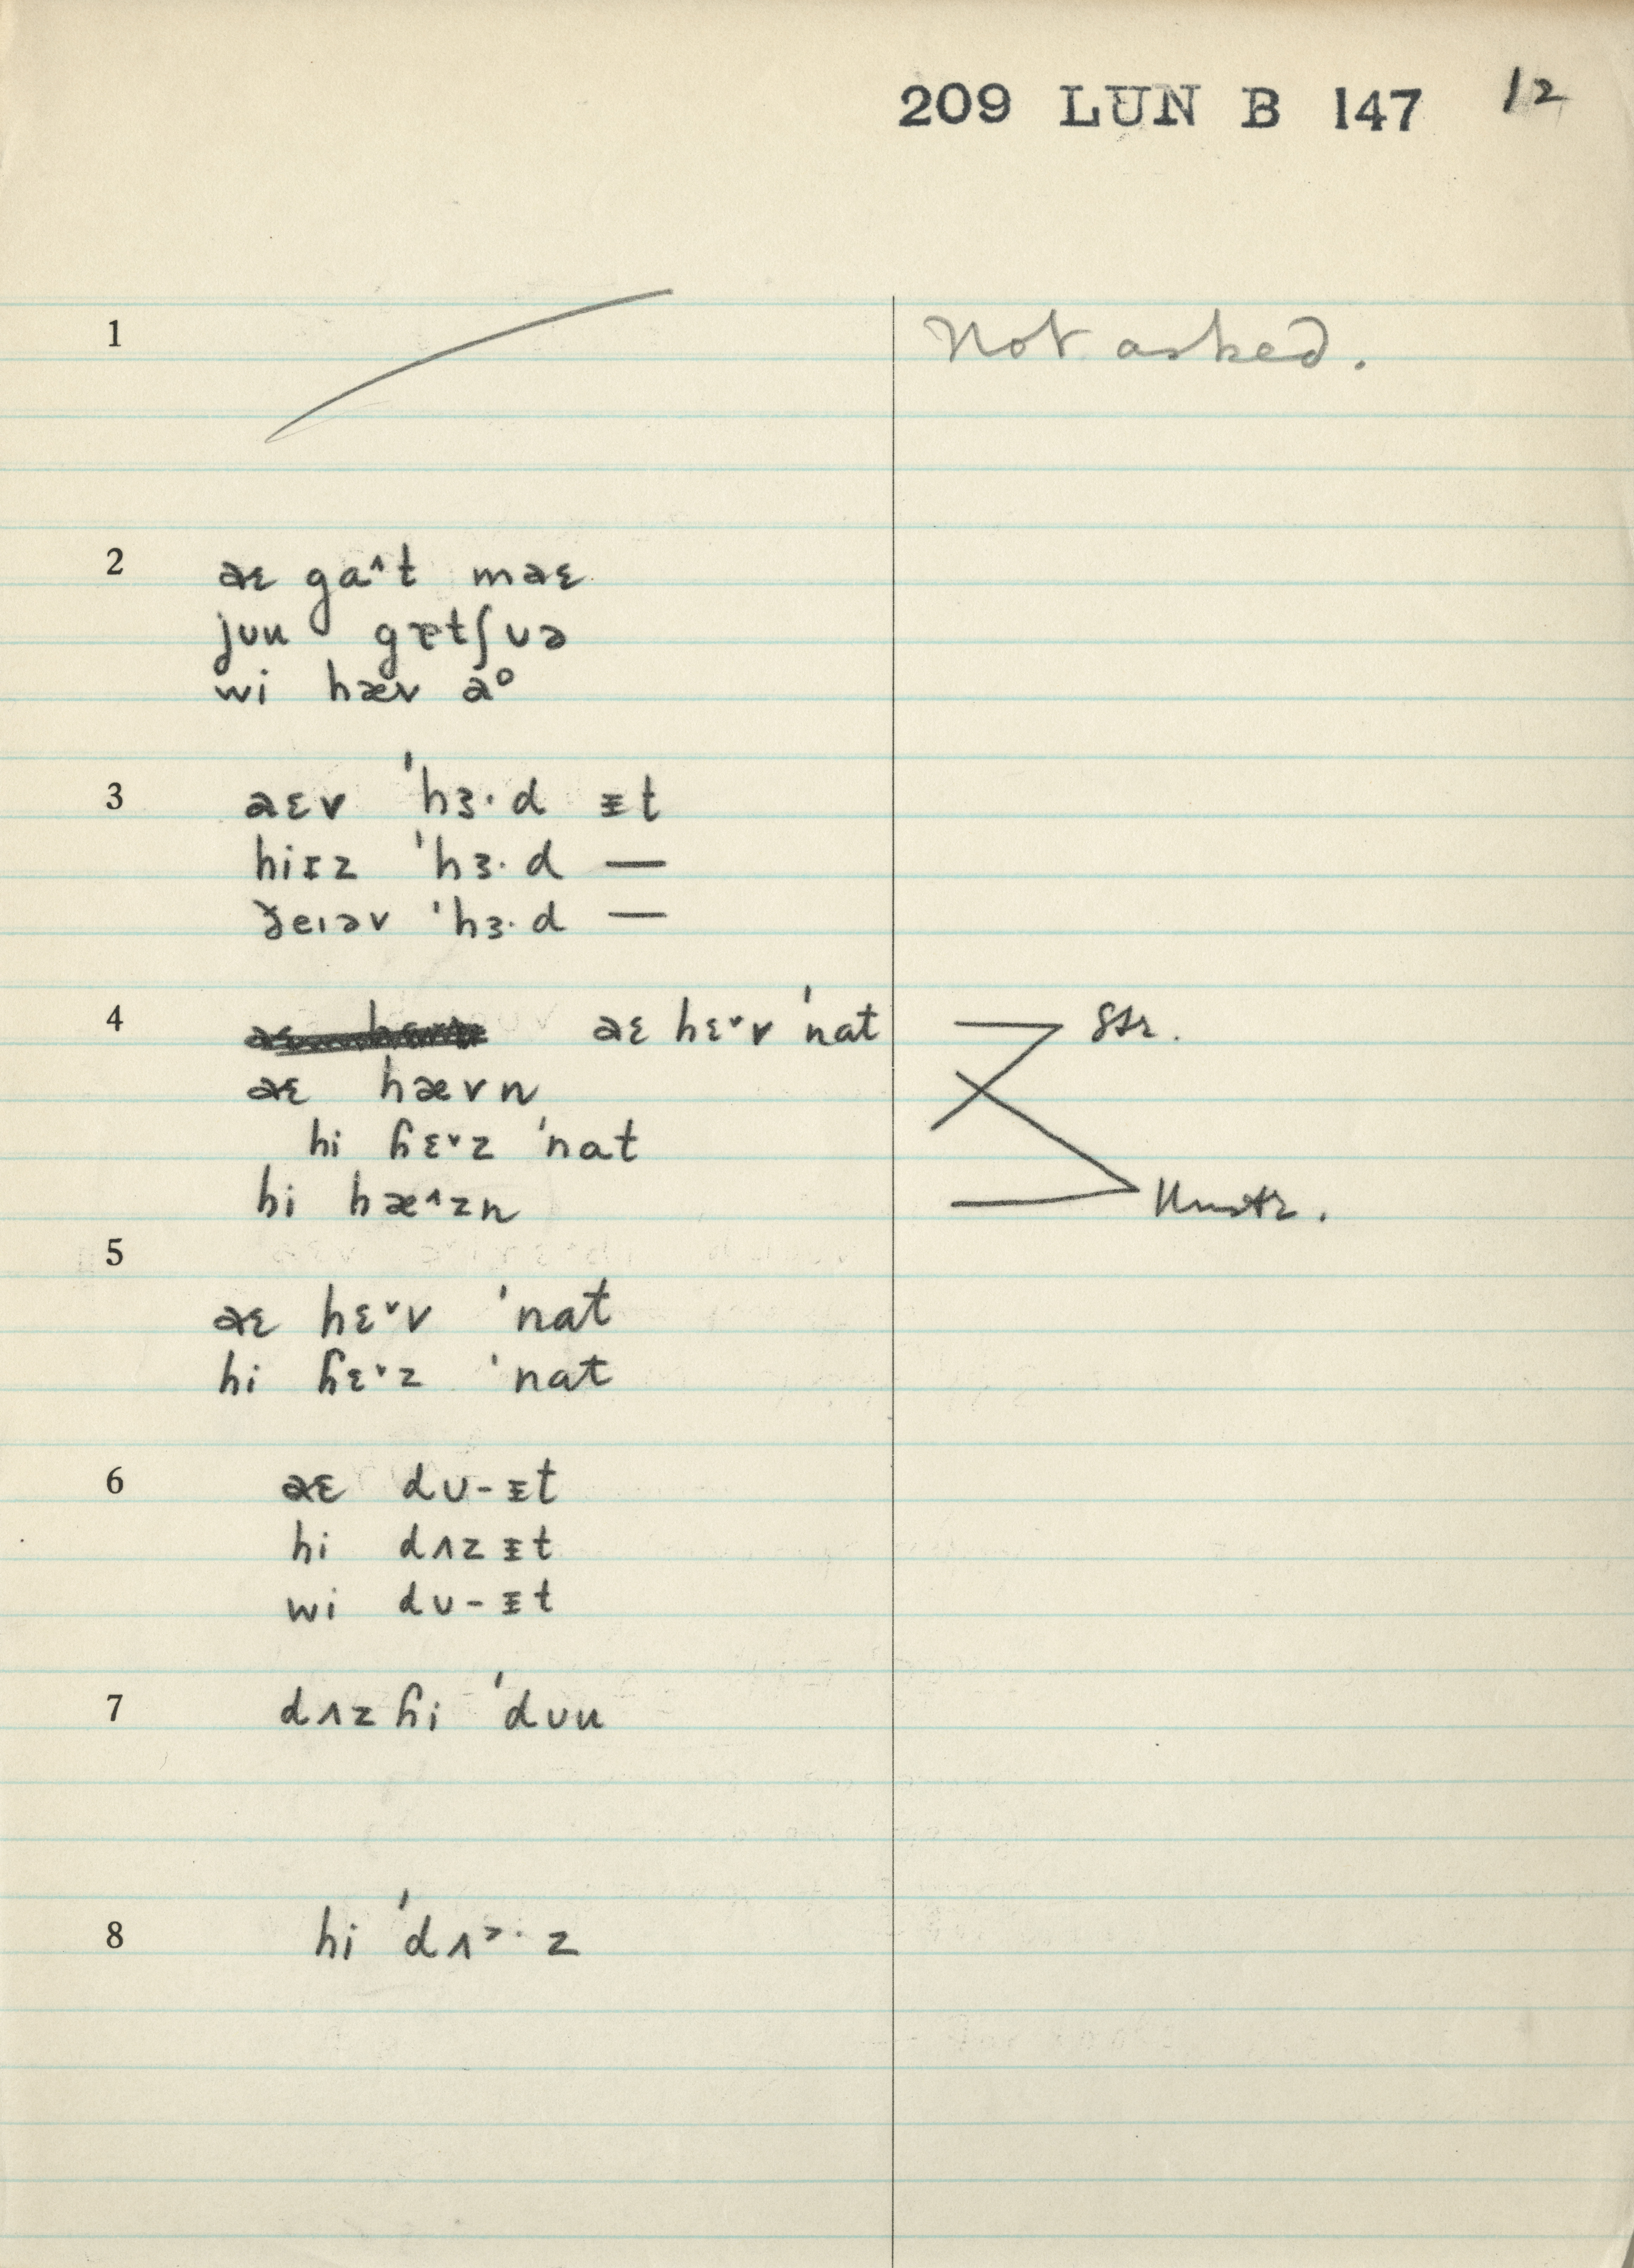 209 LUN B 147 12
1 Not asked.
2 aɛ gaʌt maɛ
jʊu gɐtʃʊə
wi hæv ao
3 aɛv ˈhɜ·d ᵻt
hiɪz ˈhɜ·d —
ðeɪəv ˈhɜ·d —
4 aɛ hɛˇv ˈnat Str.
aɛ hævn
hi ɦɛˇz ˈnat
hi hæ^zn Unstr.
5
aɛ hɛˇv ˈnat
hi ɦɛˇz ˈnat
6 aɛ dʊ-ᵻt
hi dʌzᵻt
wi dʊ-ᵻt
7 dʌzɦi ˈdʊu
8 hi ˈdʌ˃·z